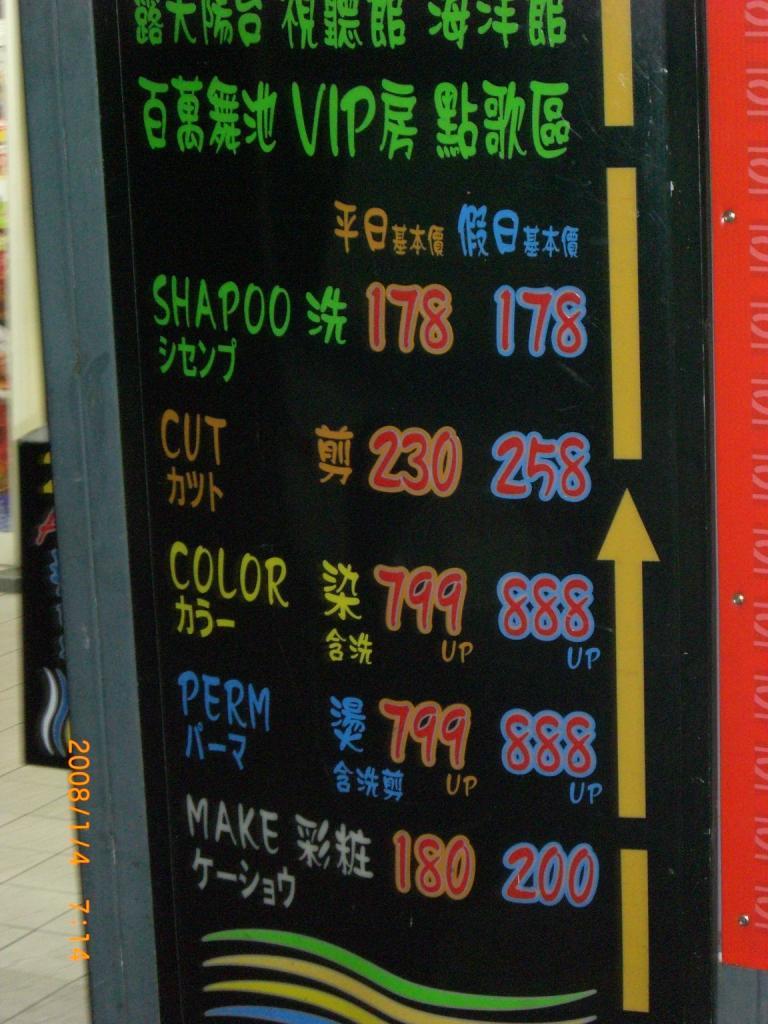 露天陽台 視聽館 海洋館
百萬舞池 VIP房 點歌區
平日基本價 假日基本價
SHAPOO 洗 178 178
シセンプ
CUT 剪 230 258
カット
COLOR 染 799 888
カラー 含洗 UP UP
PERM 燙 799 888
パーマ 含洗剪 UP UP
MAKE 彩粧 180 200
ケーショウ
2008/1/4 7:14